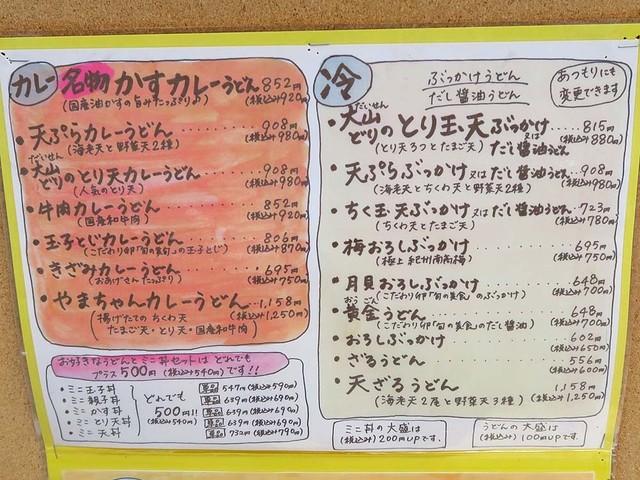 カレー 名物 かすカレーうどん 852円
(国産油かすの旨みたっぷり♪) (税込み920円)
・天ぷらカレーうどん 908円
(海老天と野菜天2種) (税込み980円)
・大山どりのとり天カレーうどん 908円
だいせん
(人気のとり天) (税込み980円)
・牛肉カレーうどん 852円
(国産和牛肉) (税込み920円)
・玉子とじカレーうどん 806円
(こだわり卵「旬の美食」の玉子とじ) (税込み870円)
・きざみカレーうどん 695円
(おあげさんたっぷり) (税込み750円)
・やまちゃんカレーうどん 1,158円
(揚げたてのちくわ天 (税込み1,250円)
たまご天・とり天・国産和牛肉)
お好きなうどんとミニ丼セットは どれでも
プラス500円(税込み540円)です!!
・ミニ玉子丼 単品 547円(税込み590円)
・ミニ親子丼 単品 639円(税込み690円)
・ミニかす丼 単品 639円(税込み690円)
・ミニとり天丼 単品 639円(税込み690円)
・ミニ天丼 単品 732円(税込み790円)
どれでも
500円!!
(税込み540円)
冷 ぶっかけうどん
だし醤油うどん
あつもりにも
変更できます
だいせん
・大山どりのとり玉天ぶっかけ 815円
又は
(とり天3つとたまご天) だし醤油うどん (税込み880円)
・天ぷらぶっかけ 又は だし醤油うどん 908円
(海老天とちくわ天と野菜天2種) (税込み980円)
・ちく玉天ぶっかけ 又は だし醤油うどん 723円
(ちくわ天とたまご天) (税込み780円)
・梅おろしぶっかけ 695円
(極上 紀州南高梅) (税込み750円)
・月見おろしぶっかけ 648円
(こだわり卵「旬の美食」のぶっかけ) (税込み700円)
おうごん
・黄金うどん 648円
(こだわり卵「旬の美食」のだし醤油) (税込み700円)
・おろしぶっかけ 602円
(税込み650円)
・ざるうどん 556円
(税込み600円)
・天ざるうどん 1,158円
(海老天2尾と野菜天3種) (税込み1,250円)
ミニ丼の大盛は
(税込み)200円UPです。
うどんの大盛は
(税込み)100円UPです。